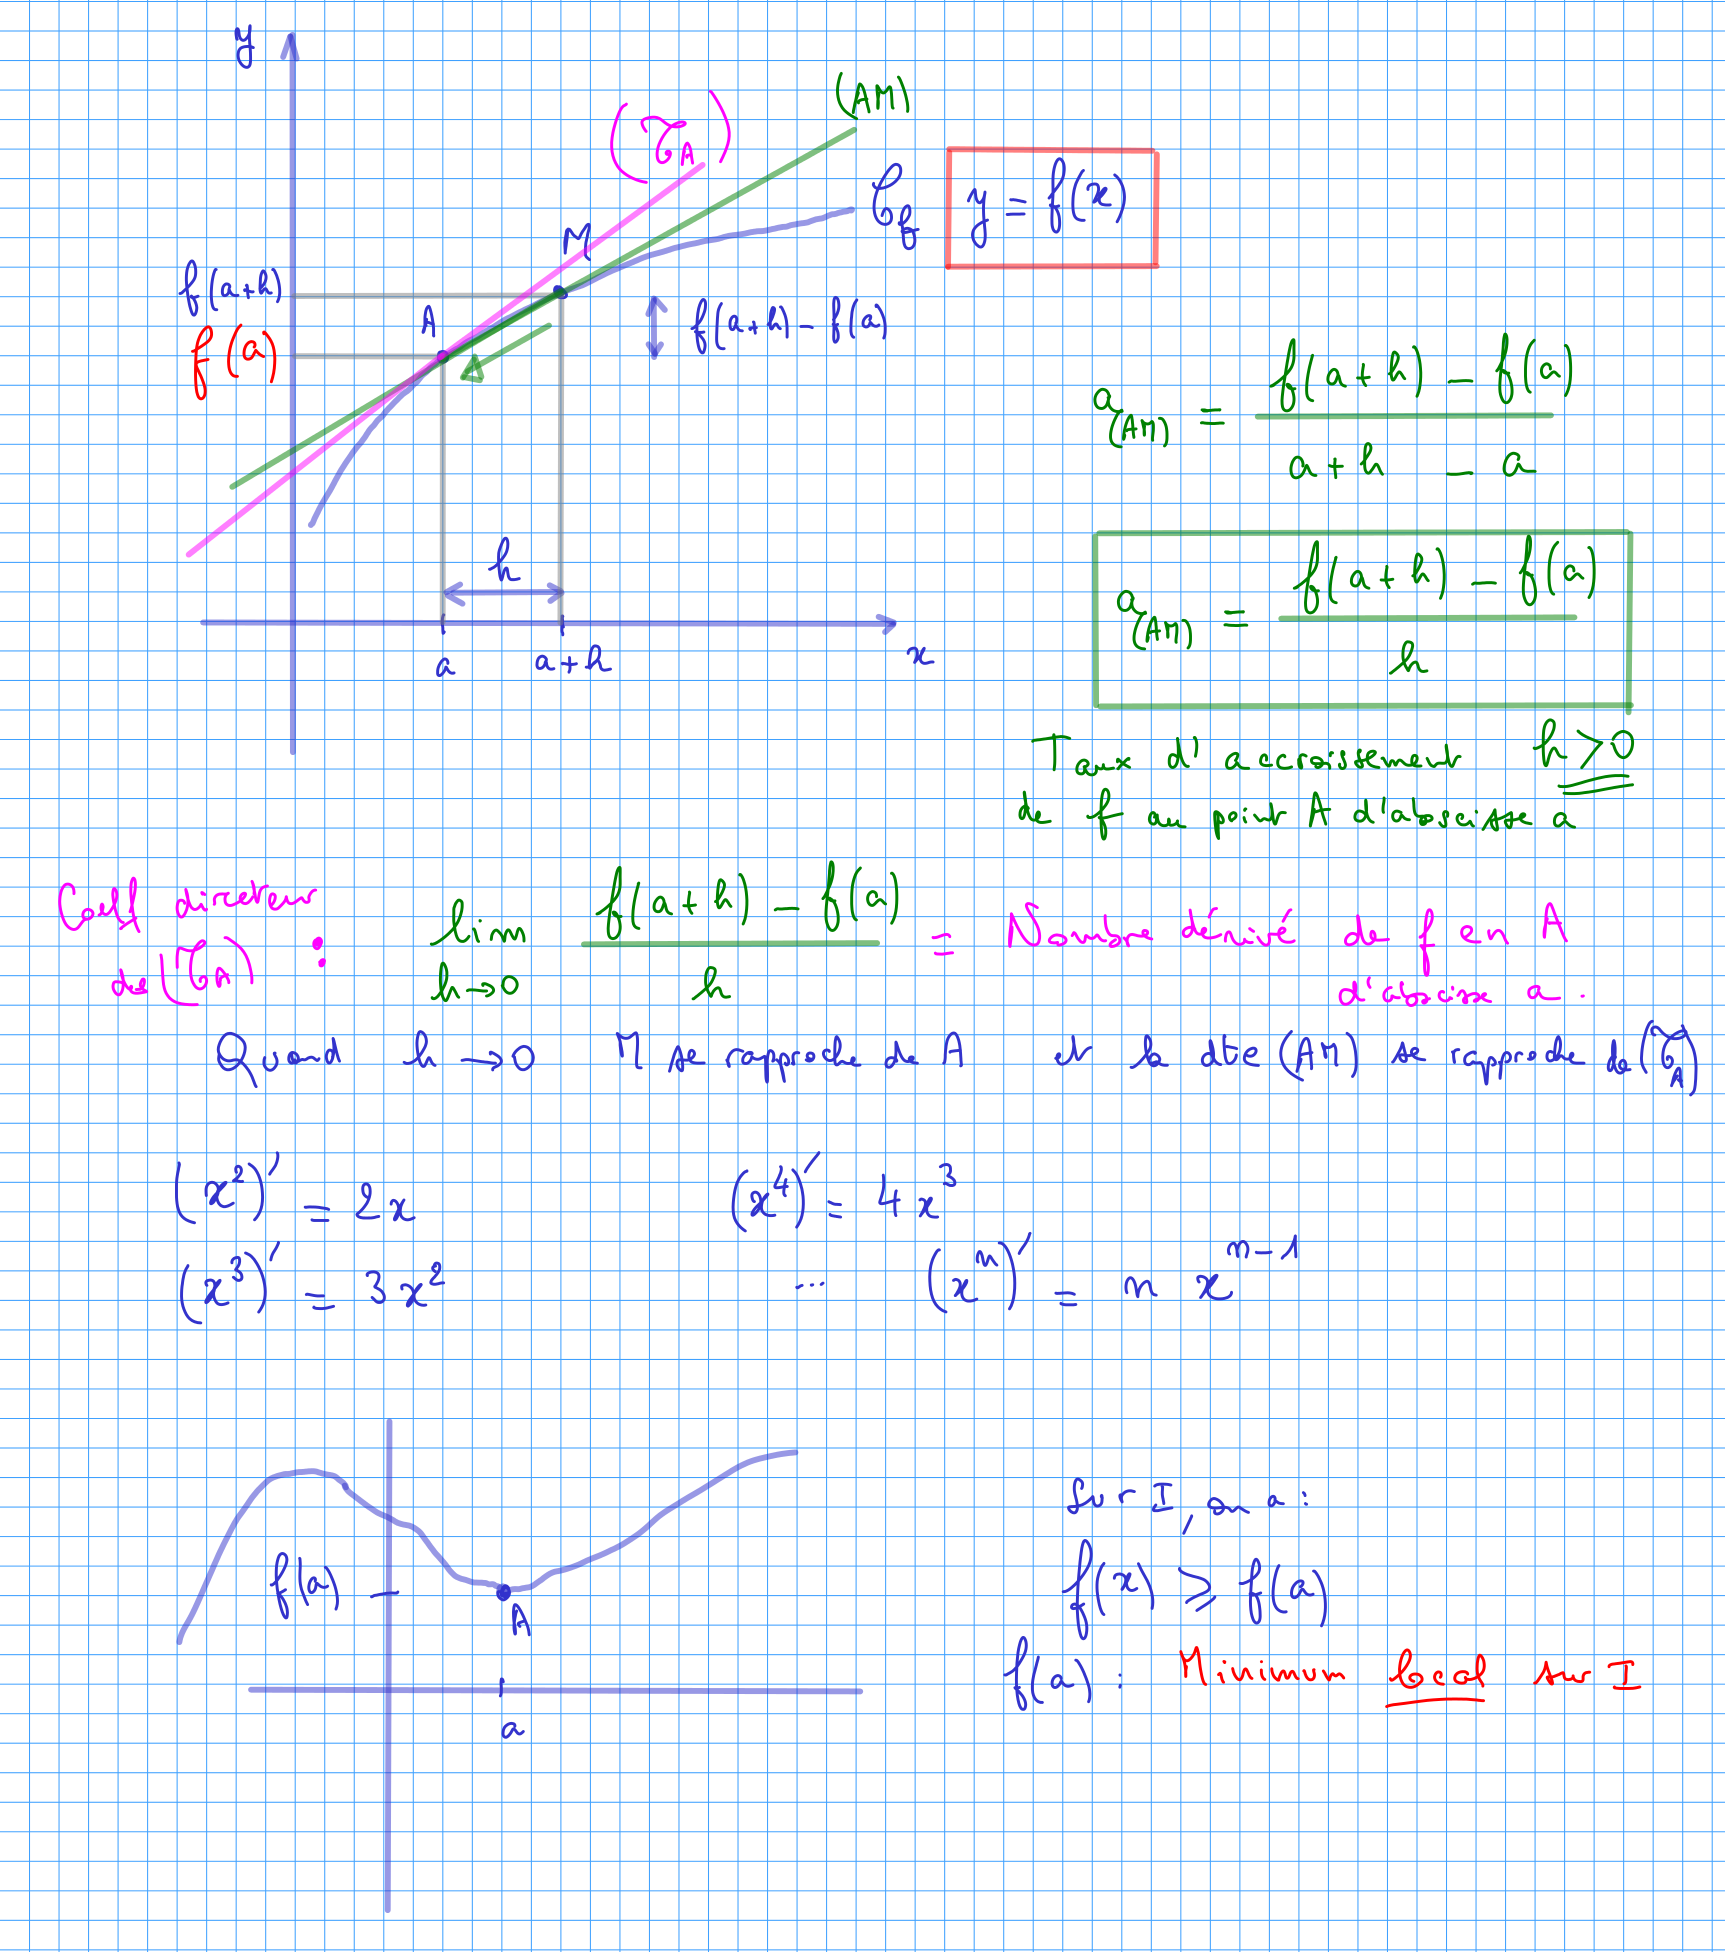 y
(𝒯A)
(AM)
𝒞f
y = f(x)
M
f(a+h)
A
f(a+h) - f(a)
f(a)
a(AM) = (f(a+h) - f(a)) / (a+h - a)
h
a(AM) = (f(a+h) - f(a)) / h
a
a+h
x
Taux d'accroissement h>0
de f au point A d'abscisse a
Coeff directeur
de (𝒯A) :
lim h→0 (f(a+h) - f(a)) / h = Nombre dérivé de f en A
d'abscisse a.
Quand h→0 M se rapproche de A et la dte (AM) se rapproche de (𝒯A)
(x²)' = 2x
(x⁴)' = 4x³
(x³)' = 3x²
... (xⁿ)' = n xⁿ⁻¹
Sur I, on a :
f(a)
A
f(x) ⩾ f(a)
f(a) : Minimum local sur I
a